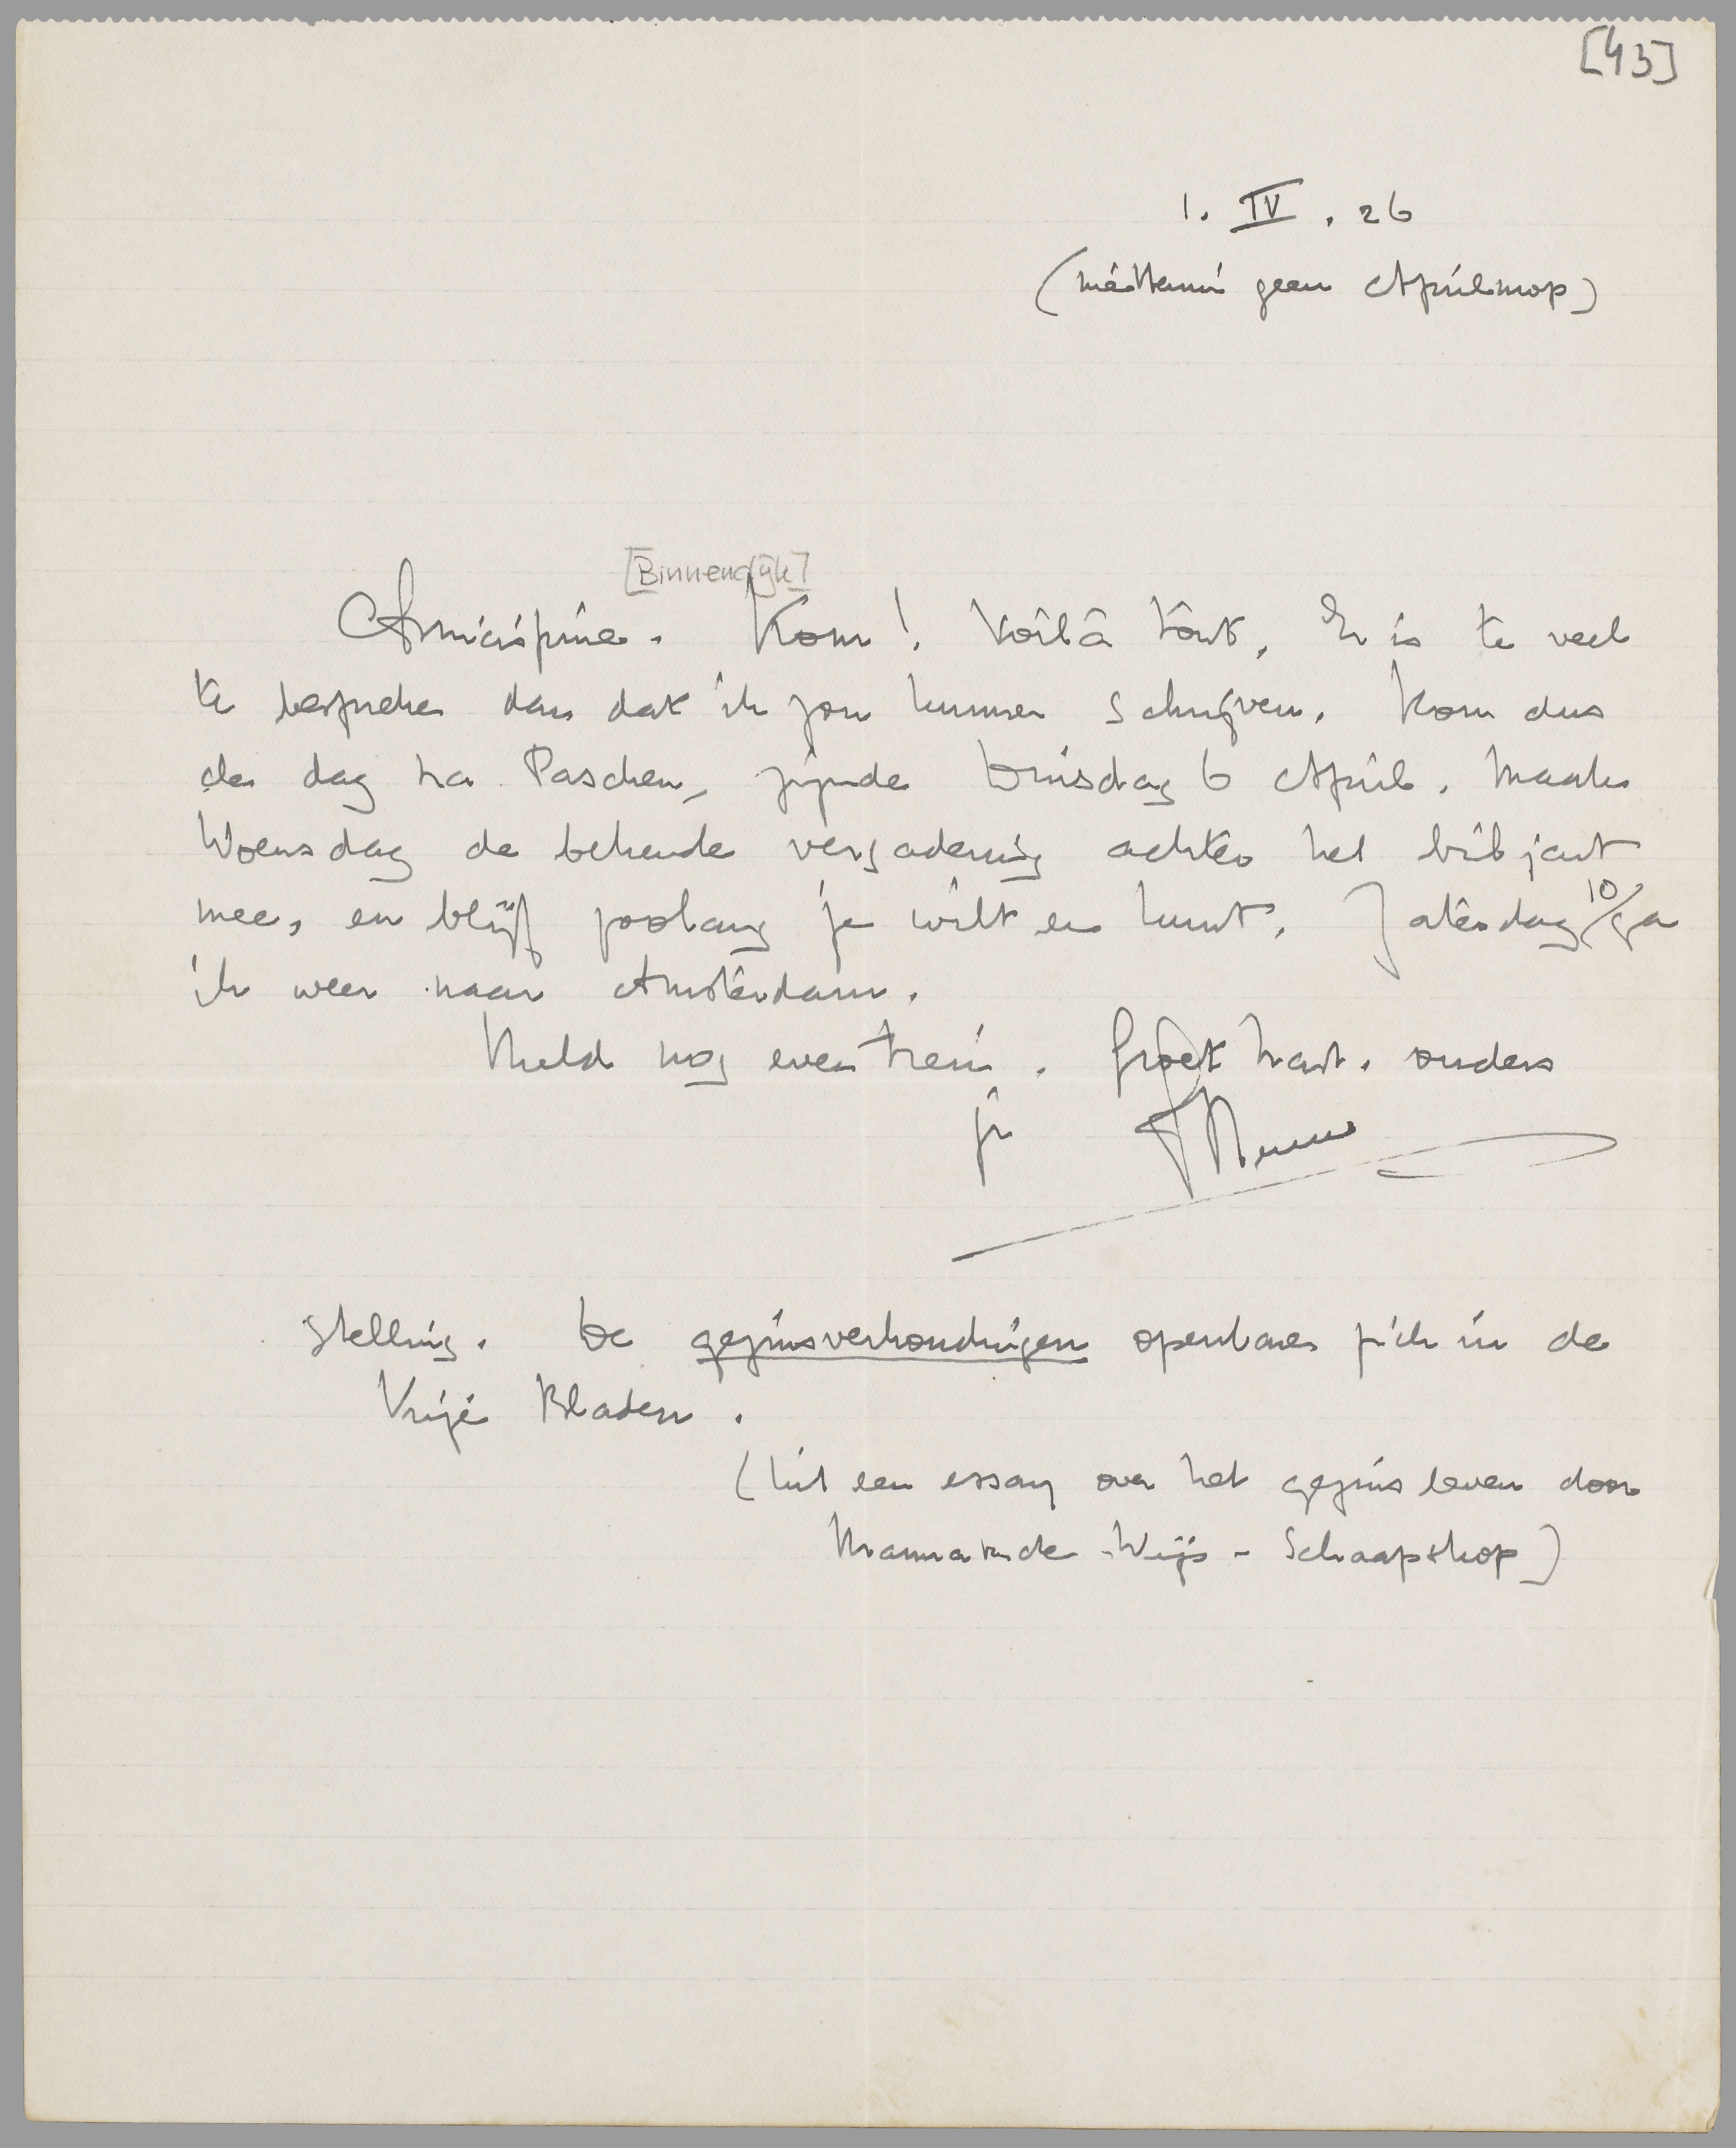 [43]
1. IV. 26
(niettemin geen Aprilmop)
[Binnendijk]
Amicissime. Kom! Voilà tout. Er is te veel
te bespreken dan dat ik zou kunnen schrijven. Kom dus
de dag na Paschen, zijnde Dinsdag 6 April. Maak
Woensdag de bekende vergadering achter het biljart
mee, en blijf zoolang je wilt en kunt. Zaterdag 10/ ga
ik weer naar Amsterdam.
Meld nog even trein. Groet hart. ouders
je Menno
Stelling. De gezinsverhoudingen openbaren zich in de
Vrije Bladen.
(Uit een essay over het gezinsleven door
de Wijs-Schaapskop)